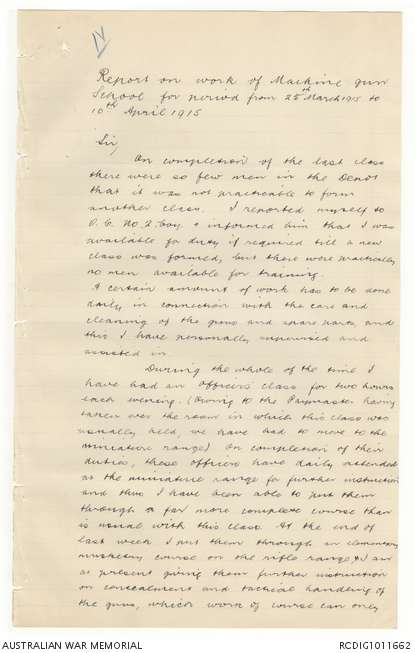 IV
Report on work of Machine gun
School for period from 25th March 1915 to
10th April 1915
Sir,
On completion of the last class
there were so few men in the Depot
that it was not practicable to form
another class. I reported myself to
O.C. No. 2 Coy. & informed him that I was
available for duty if required till a new
class was formed, but there were practically
no men available for training.
A certain amount of work has to be done
daily in connection with the care and
cleaning of the guns and spare parts, and
this I have personally supervised and
assisted in.
During the whole of the time I
have had an officers' class for two hours
each evening. (Owing to the Paymaster having
taken over the room in which this class was
usually held, we have had to move to the
miniature range) On completion of their
duties, these officers have daily attended
at the miniature range for further instruction
and thus I have been able to put them
through a far more complete course than
is usual with this class. At the end of
last week I put them through an elementary
musketry course on the rifle range, & I am
at present giving them further instruction
on concealment and tactical handling of
the guns, which work of course can only
AUSTRALIAN WAR MEMORIAL
RCDIG1011662